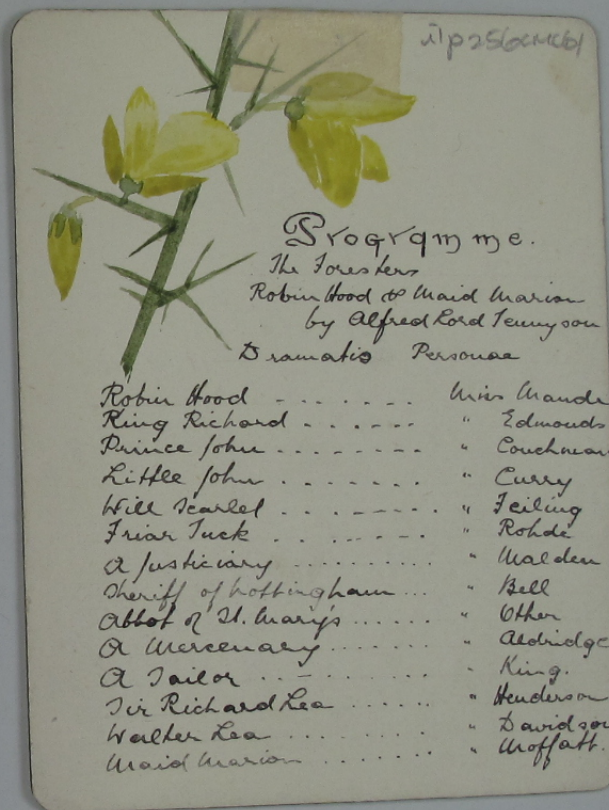 Programme.
The Foresters
Robin Hood & Maid Marion
by Alfred Lord Tennyson
Dramatis Personae
Robin Hood - . . . . . . - Miss Maude
King Richard - . . . . - - " Edmonds
Prince John - . . . . . . . " Couchman
Little John - . . . . . . " Curry
Will Scarlet . . - . - - - . " Feiling
Friar Tuck . . . - . . . . " Rohde
A Justiciary . . . . . . . . . . " Malden
Sheriff of Nottingham . . . " Bell
Abbot of St. Mary's . . . . . . " Other
A Mercenary . . . . . . . . " Aldridge
A Sailor . . . - . . . . . . " King.
Sir Richard Lea . . . . . . " Henderson
Walter Lea . . . . . . . . . " Davidson
Maid Marion . . . . . . . " Moffatt.